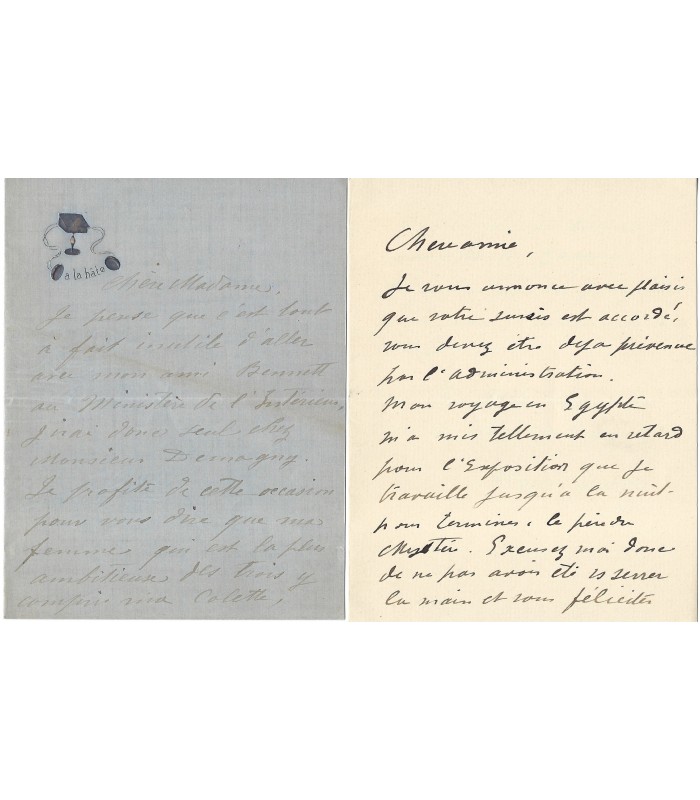 a la hâte
Chère Madame,
Je pense que c'est tout
à fait inutile d'aller
avec mon ami Bennett
au Ministère de l'Interieur,
j'irai donc seul chez
Monsieur Demagny.
Je profite de cette occasion
pour vous dire que ma
femme qui est la plus
ambitieuse des trois y
compris ma Colette,
Chere amie,
Je vous annonce avec plaisir
que votre sursis est accordé,
vous devez être deja prévenue
par l'administration.
Mon voyage en Egypte
m'a mis tellement en retard
pour l'Exposition que je
travaille jusqu'à la nuit
pour terminer le père du
Excusez moi donc
de ne pas avoir été vs serrer
la main et vous féliciter